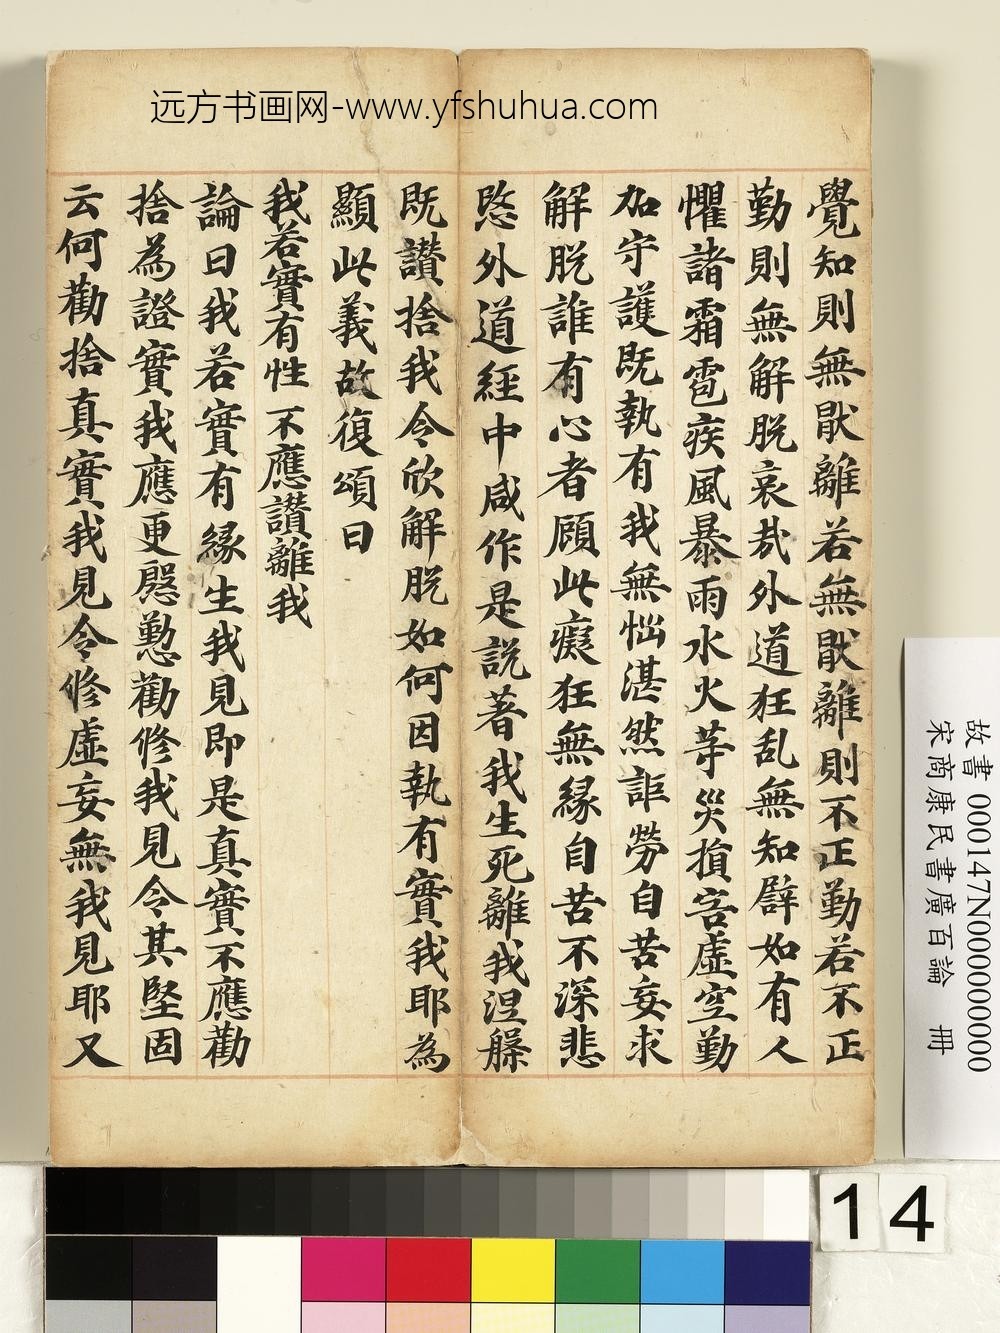 远方书画网-www.yfshuhua.com
覺知則無猒離若無猒離則不正勤若不正
勤則無解脫哀哉外道狂乱無知辟如有人
懼諸霜雹疾風暴雨水火等災損害虛空勤
加守護既執有我無惱湛然詎勞自苦妄求
解脫誰有心者顧此癡狂無緣自苦不深悲
愍外道經中咸作是説著我生死離我涅槃
既讃捨我令欣解脫如何因執有實我耶為
顯此義故復頌曰
我若實有性 不應讃離我
論曰我若實有緣生我見即是真實不應勸
捨為證實我應更慇懃勸修我見令其堅固
云何勸捨真實我見令修虛妄無我見耶又
故書 000147N000000000
宋商康民書廣百論 冊
14